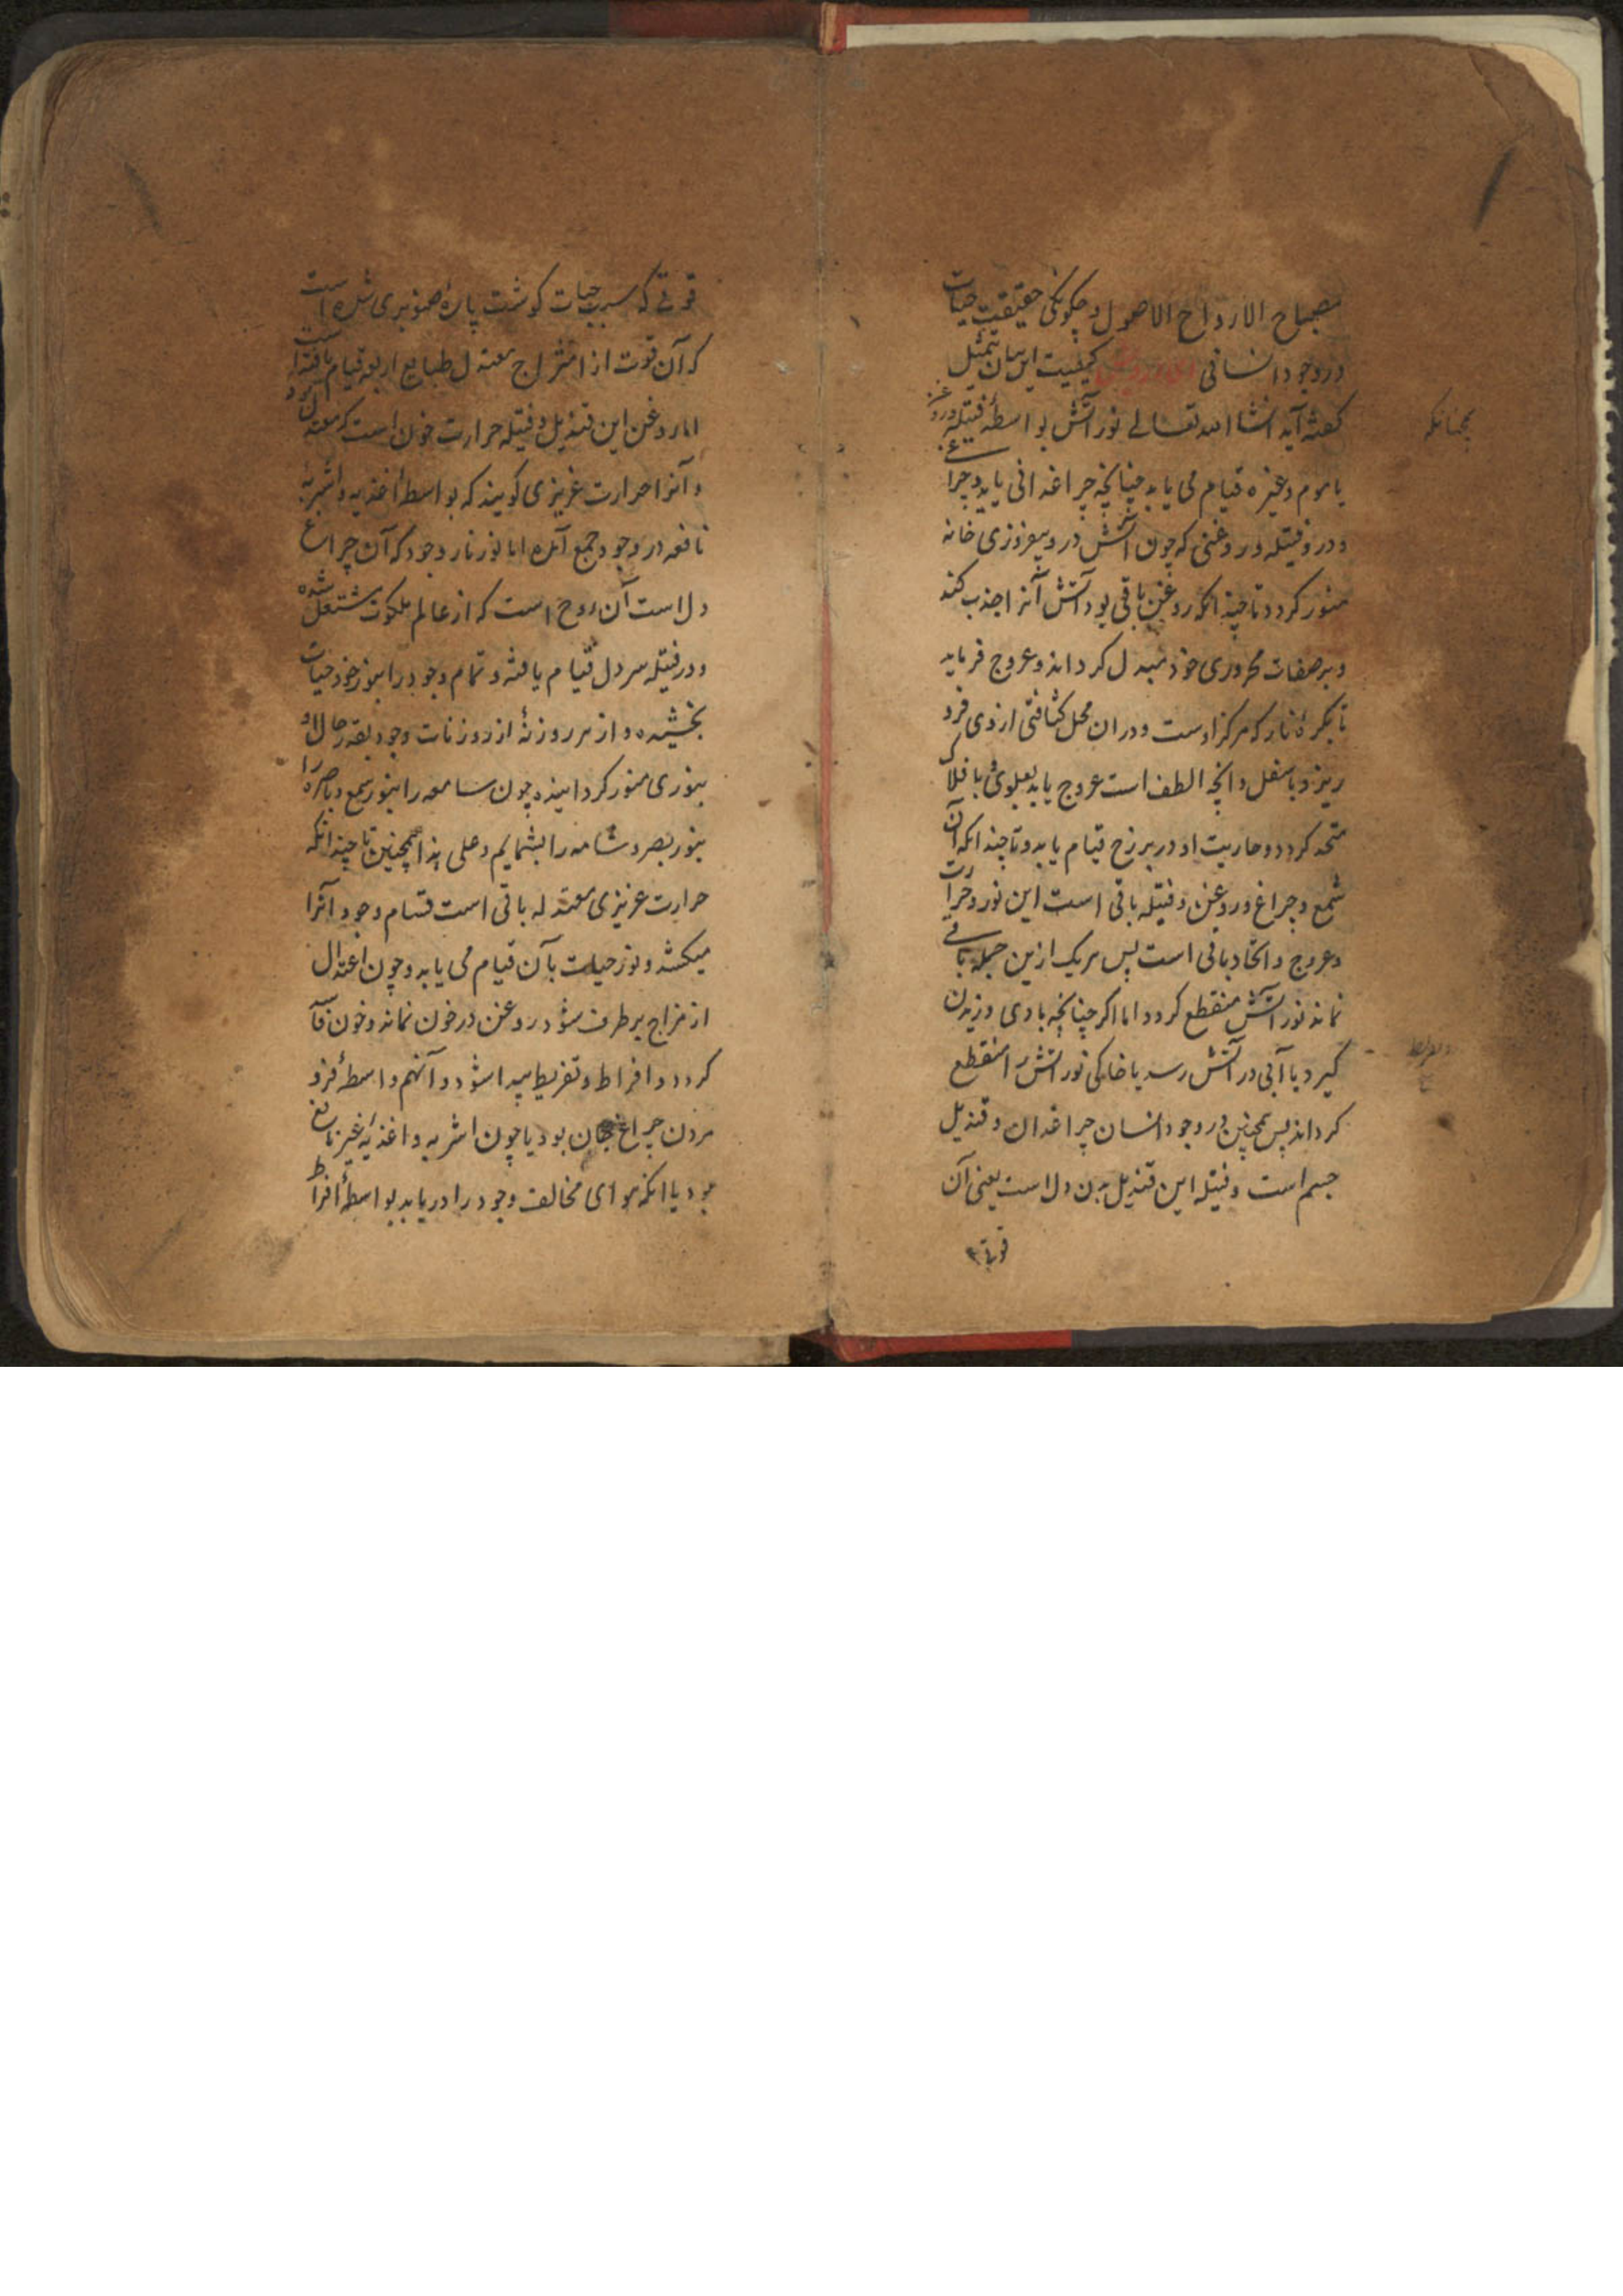 مصباح الارواح الاصول و چکونکی حقیقیت حیات
در وجود انسانی ای درویش کیفیت این بیان بتمثیل
کفته آید انشا الله تعالی نور آتش بواسطهٔ فتیله و روغن
همچنانکه
یا موم و غیره قیام می یابد چنانچه چراغدانی باید و چراغی
و درو فتیله و روغنی که چون آتش درو بیفروزی خانه
منور کردد تا چندانکه روغن باقی بود آتش آنرا جذب کند
و بر صفات محروری خود مبدل کرداند و عروج فرماید
تا بکرهٔ نار که مرکز اوست و دران محل کثافتی ازوی فرو
ریزد باسفل و انچه الطف است عروج یابد بعلوی با فلاک
متحد کردد و حاریت او در برزخ قیام یابد و تا چندانکه آن
شمع و چراغ و روغن و فتیله باقی است این نور و حرارت
و عروج و اتحاد باقی است پس هر یک ازین جمله باقی
نماند نور آتش منقطع کردد اما اکر چنانچه بادی وزیدن
کیرد یا آبی در آتش رسد یا خاکی نور آتش را منقطع
کرداند پس همچنین در وجود انسان چراغدان و قندیل
جسم است و فتیله این قندیل بدن دل است یعنی آن
قوتی
قوتی که سبب حیات کوشت پارهٔ صنوبری شده است
که آن قوت از امتزاج معتدل طبایع اربعه قیام یافته است
اما روغن این قندیل و فتیله حرارت خون است که معتدل بود
و آنرا حرارت غریزی کویند که بواسطهٔ اغذیه و اشربهٔ
نافعه در وجود جمع آمده اما نور نار وجود که آن چراغ
دل است آن روح است که از عالم ملکوت مشتعل شده
و در فتیله سر دل قیام یافته و تمام وجود را بنور خود حیات
بخشیده و از هر روزنهٔ از روزنات وجود بقدر حال او
بنوری منور کردانیده چون سامعه را بنور سمع و باصره را
بنور بصر و شامه را بشمایم و علی هذا همچنین تا چندانکه
حرارت غریزی معتدله باقی است قسام وجود آنرا
میکشد و نور حیات بآن قیام می یابد و چون اعتدال
از مزاج برطرف شود و روغن در خون نماند و خون فآسد
کردد و افراط و تفریط پیدا شود و آنهم واسطهٔ فرو
مردن چراغ جان بود یا چون اشربه و اغذیهٔ غیر نافع
بود یا انکه هوای مخالف وجود را دریابد بواسطهٔ افراط